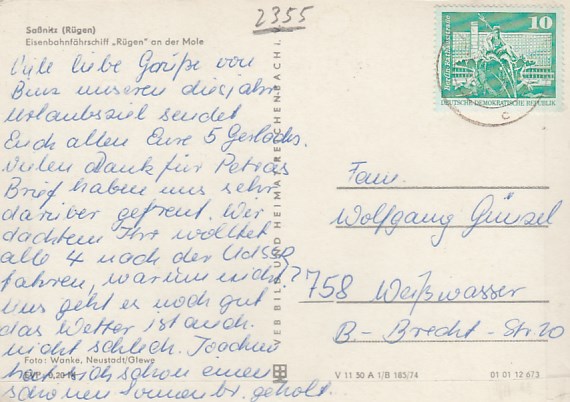 2355
Saßnitz (Rügen)
Eisenbahnfährschiff „Rügen" an der Mole
Viele liebe Grüße von
Binz unseren diesjähr.
Urlaubsziel sendet
Euch allen Eure 5 Gerlachs.
Vielen Dank für Petras
Brief haben uns sehr
darüber gefreut. Wir
dachten Ihr wolltet
alle 4 nach der UdSSR
fahren, warum nicht?
Uns geht es noch gut
das Wetter ist auch
nicht schlech. Joachen
hat sich schon einen
schönen Sonnenbr. geholt.
Foto: Wanke, Neustadt/Glewe
EVP: 0,20
VEB BILD UND HEIMAT REICHENBACH i. V.
Berlin
10
DEUTSCHE DEMOKRATISCHE REPUBLIK
c
Fam.
Wolfgang Günzel
7758 Weißwasser
B.-Brecht-Str. 20
V 11 50 A 1/B 185/74
01 01 12 673